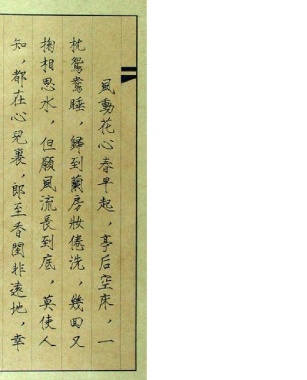 風動花心春早起，亭后空床，一
枕鴛鴦睡，歸到蘭房妝倦洗，幾回又
掬相思水，但願風流長到底，莫使人
知，都在心兒裏，郎至香閨非遠地，幸